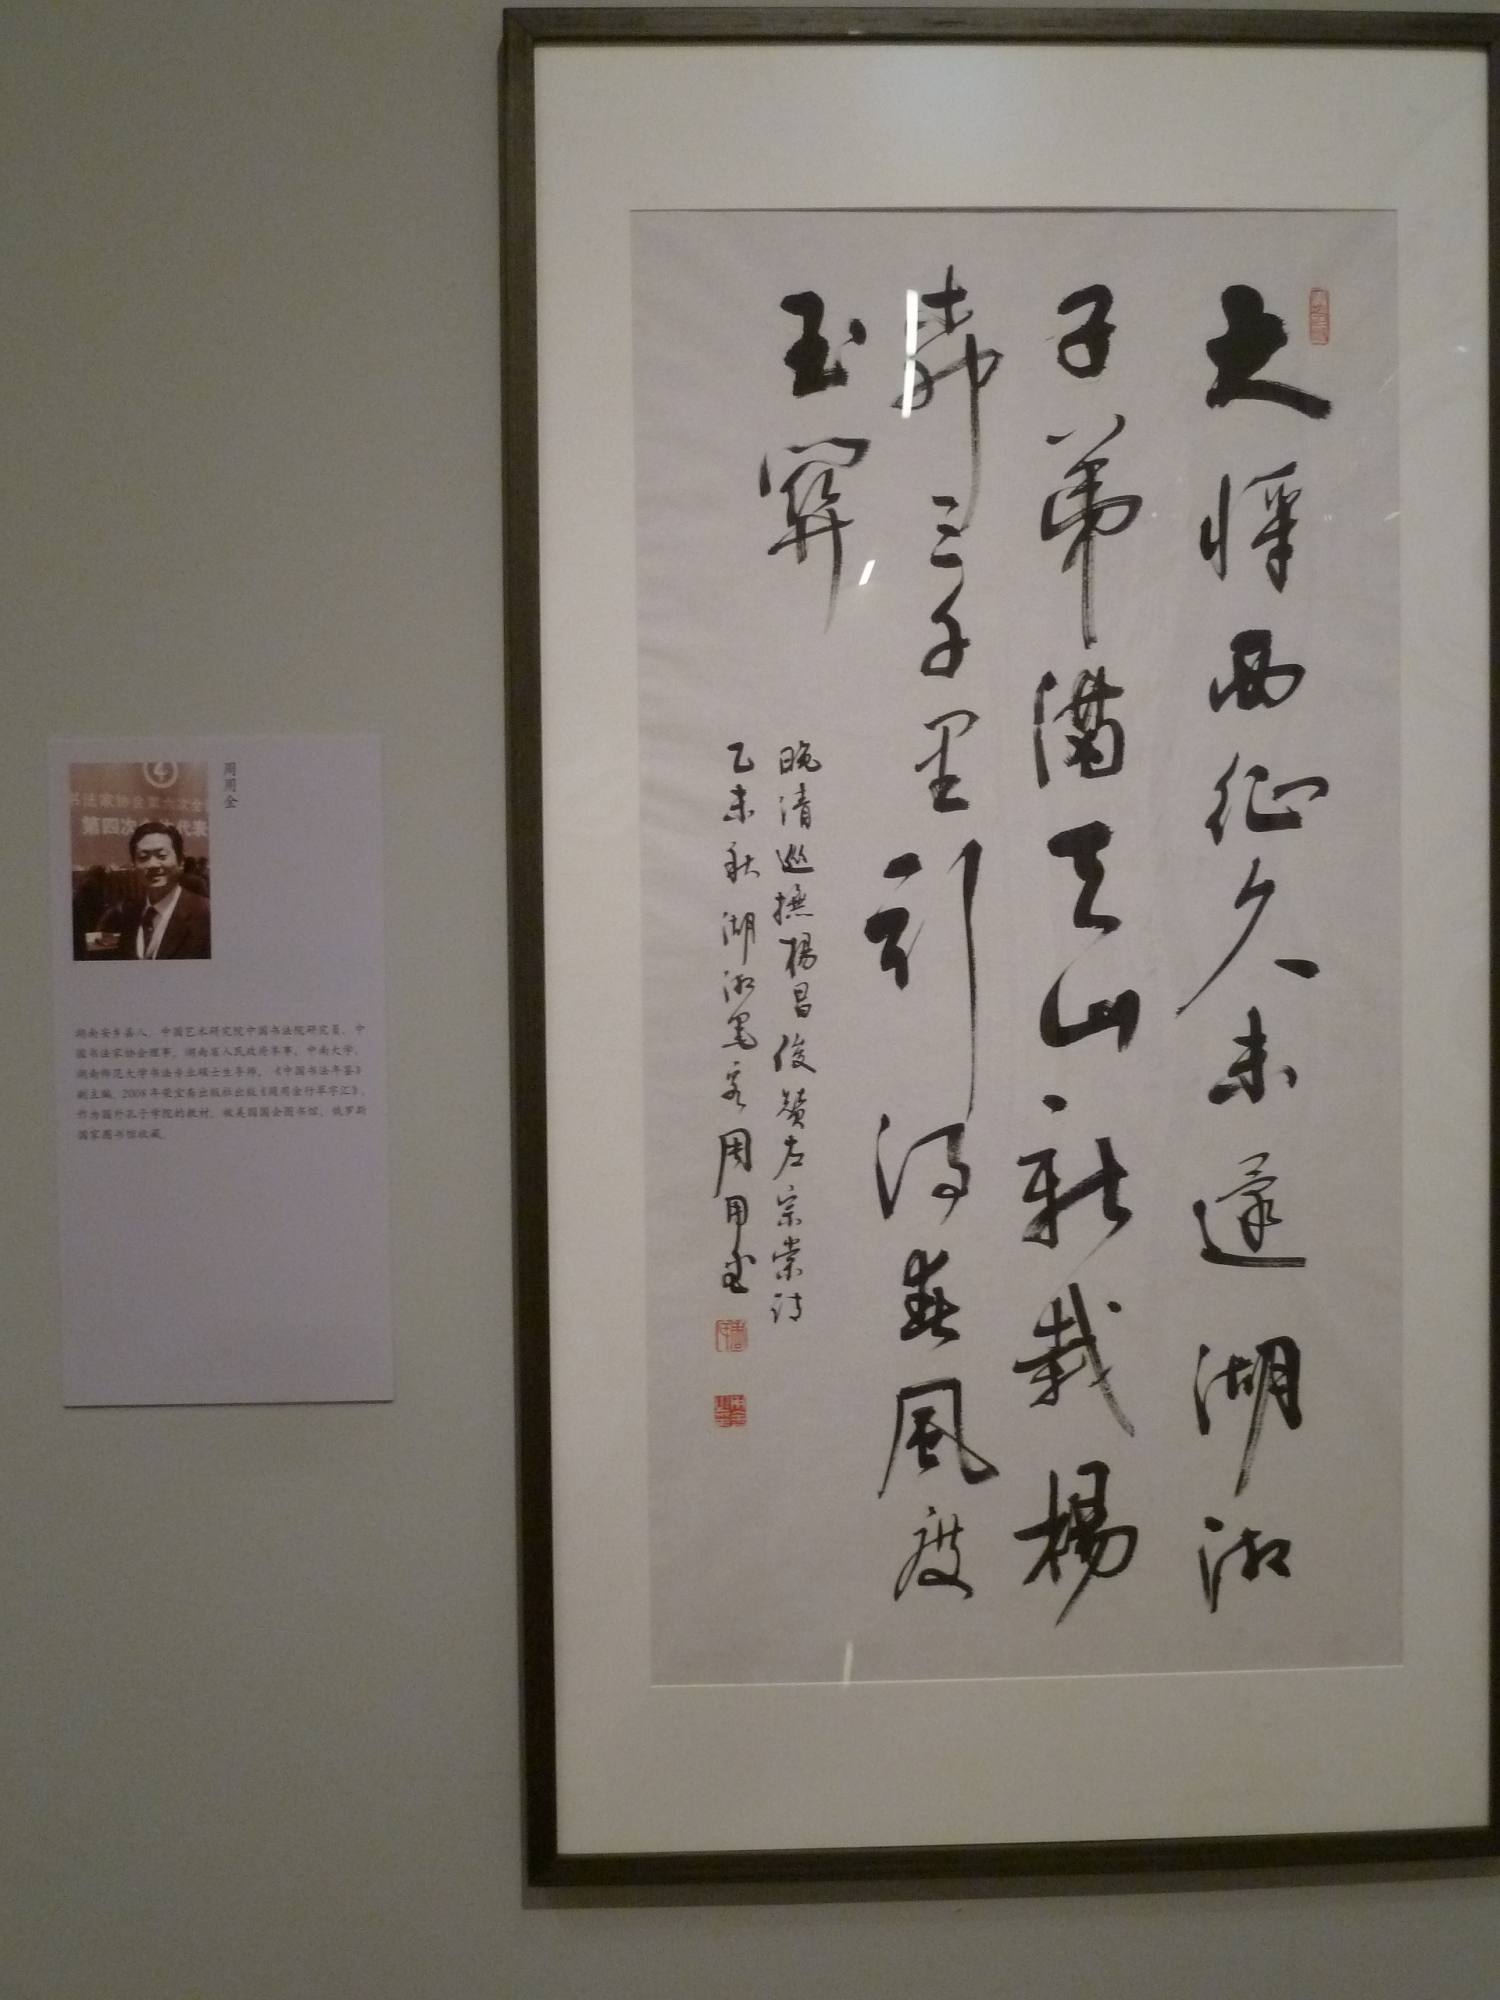 大將西征久未還湖湘
子弟滿天山新栽楊
柳三千里引得春風度
玉關
晚清巡撫楊昌俊贊左宗棠詩
乙未秋湖湘墨客周用金
周用金
书法家协会第六次全
第四次 代表
湖南安乡县人。中国艺术研究院中国书法院研究员,中
国书法家协会理事,湖南省人民政府参事,中南大学、
湖南师范大学书法专业硕士生导师,《中国书法年鉴》
副主编。2008年荣宝斋出版社出版《周用金行草字汇》,
作为国外孔子学院的教材,被美国国会图书馆、俄罗斯
国家图书馆收藏。